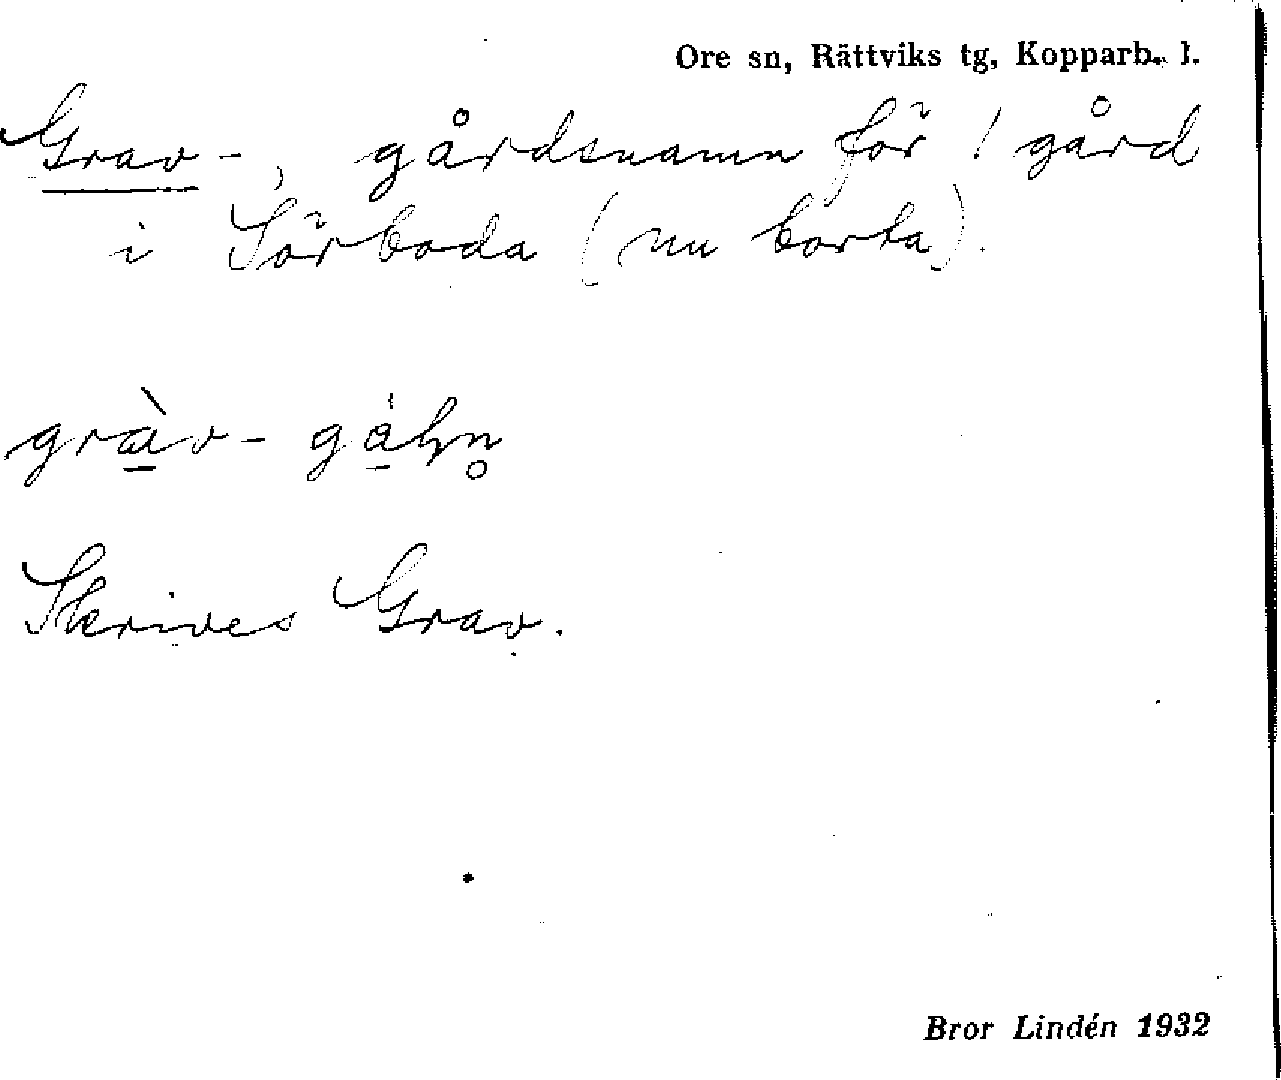 Ore sn, Rättviks tg, Kopparb. l.
Grav-, gårdsnamn för 1 gård
i Sörboda (nu borta).
gràv-
Skrives Grav.
Bror Lindén 1932